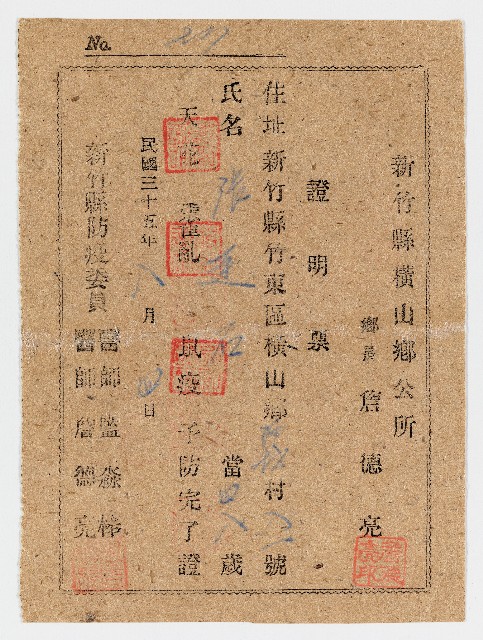 No.
新竹縣橫山鄉公所
鄉長 詹德亮
證明票
住址 新竹縣竹東區橫山鄉 義 村 號
氏名 張 當 歲
天花 霍亂 鼠疫 予防完了證
民國三十五年 八 月 四 日
新竹縣防疫委員
醫師 詹德亮